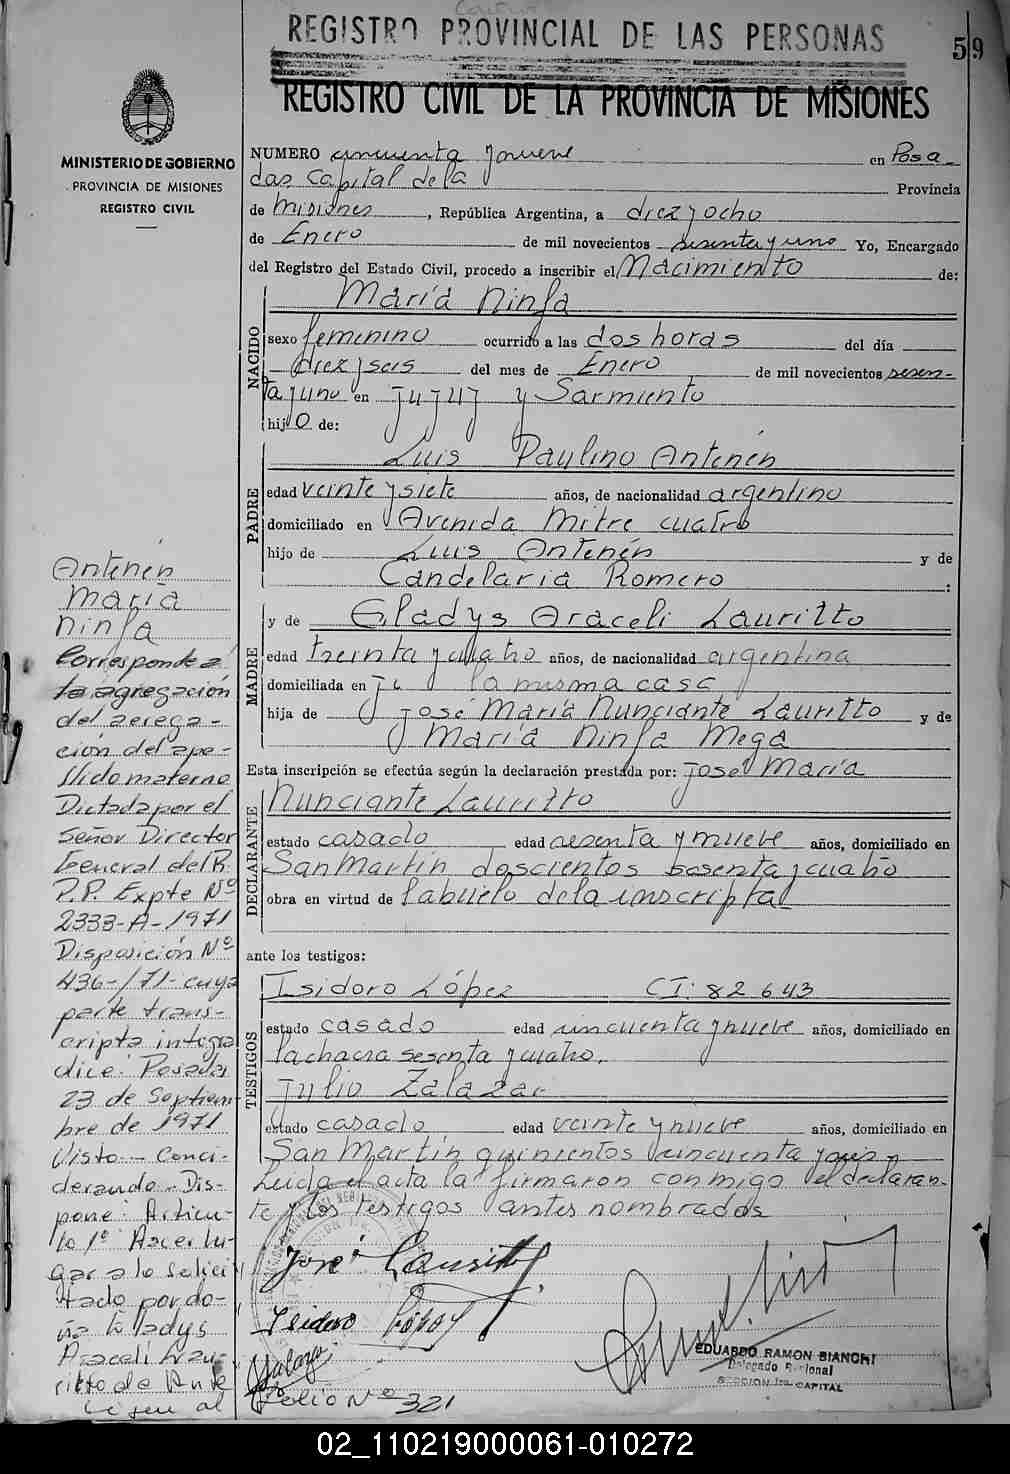 REGISTRO PROVINCIAL DE LAS PERSONAS
59
REGISTRO CIVIL DE LA PROVINCIA DE MISIONES
MINISTERIO DE GOBIERNO
PROVINCIA DE MISIONES
REGISTRO CIVIL
NUMERO cincuenta y nueve en Posa-
das Capital de la Provincia
de Misiones, República Argentina, a diez y ocho
de Enero de mil novecientos sesenta y uno Yo, Encargado
del Registro del Estado Civil, procedo a inscribir el Nacimiento de:
NACIDO
María Ninfa
sexo femenino ocurrido a las dos horas del día
diez y seis del mes de Enero de mil novecientos sesen-
ta y uno en Jujuy y Sarmiento
hija de:
PADRE
Luis Paulino Antenén
edad veinte y siete años, de nacionalidad argentino
domiciliado en Avenida Mitre cuatro
hijo de Luis Antenén y de
Candelaria Romero :
MADRE
y de Gladys Araceli Lauritto
edad treinta y cuatro años, de nacionalidad argentina
domiciliada en la misma casa
hija de José María Nunciante Lauritto y de
María Ninfa Mega
Esta inscripción se efectúa según la declaración prestada por: José María
DECLARANTE
Nunciante Lauritto
estado casado edad sesenta y nueve años, domiciliado en
San Martín doscientos sesenta y cuatro
obra en virtud de ser abuelo de la inscripta
ante los testigos:
TESTIGOS
Isidoro López CI: 82.643
estado casado edad cincuenta y nueve años, domiciliado en
la chacra sesenta y cuatro.
Julio Zalazar
estado casado edad veinte y nueve años, domiciliado en
San Martín quinientos cincuenta y
Leída el acta la firmaron conmigo el declaran-
te y los testigos antes nombrados
José Lauritto
Isidoro López
Zalazar
Folio Nº 321
EDUARDO RAMON BIANCHI
Delegado Regional
SECCION 1ra. CAPITAL
Antenén
María
Ninfa
Corresponde a
la agregación
del acrega-
ción del ape-
llido materno
Dictada por el
Señor Director
General del R.
P.P. Expte Nº
2333-A-1971
Disposición Nº
436-/71- cuya
parte trans-
cripta integra
dice: Posadas
23 de Septiem-
bre de 1971
Visto - Conci-
derando - Dis-
pone: Artícu-
lo 1º Acer lu-
gar a lo solici
tado por do-
ña Gladys
Araceli Lau-
ritto de Ante
al
02_110219000061-010272